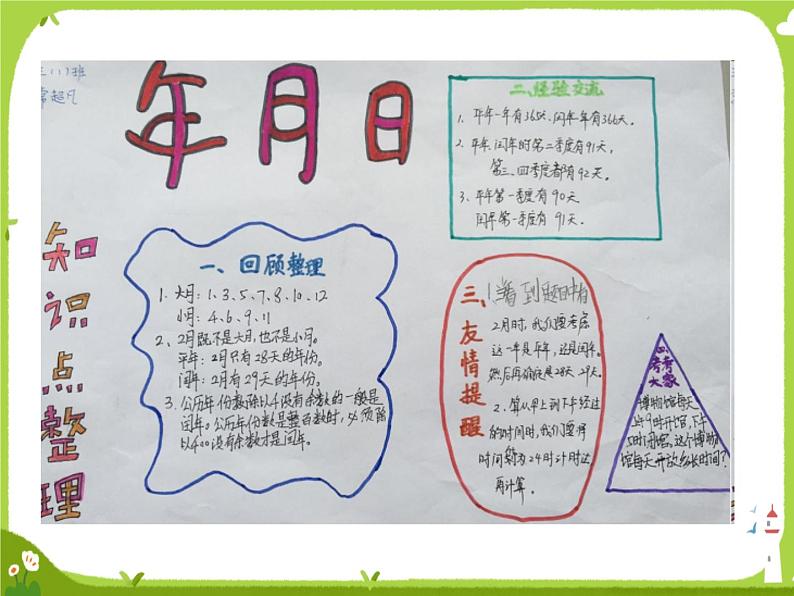 三(1)班
常超凡
年月日
知识点整理
一、回顾整理
1. 大月：1、3、5、7、8、10、12
小月：4、6、9、11
2、2月既不是大月，也不是小月。
平年：2月只有28天的年份。
闰年：2月有29天的年份。
3. 公历年份数除以4没有余数的一般是
闰年。公历年份数是整百数时，必须除
以400没有余数才是闰年。
二、经验交流
1. 平年一年有365天、闰年一年有366天。
2. 平年、闰年时第二季度有91天，
第三、四季度都有92天。
3、平年第一季度有90天
闰年第一季度有91天。
三、友情提醒
1.看到题目中有
2月时，我们要考虑
这一年是平年，还是闰年。
然后再确定是28天、29天。
2. 算从早上到下午经过
的时间时，我们要将
时间转为24时计时法，
再计算。
四、
考考
大家
博物馆每天
上午9时开馆，下午
5时闭馆，这个博物
馆每天开放多长时间？